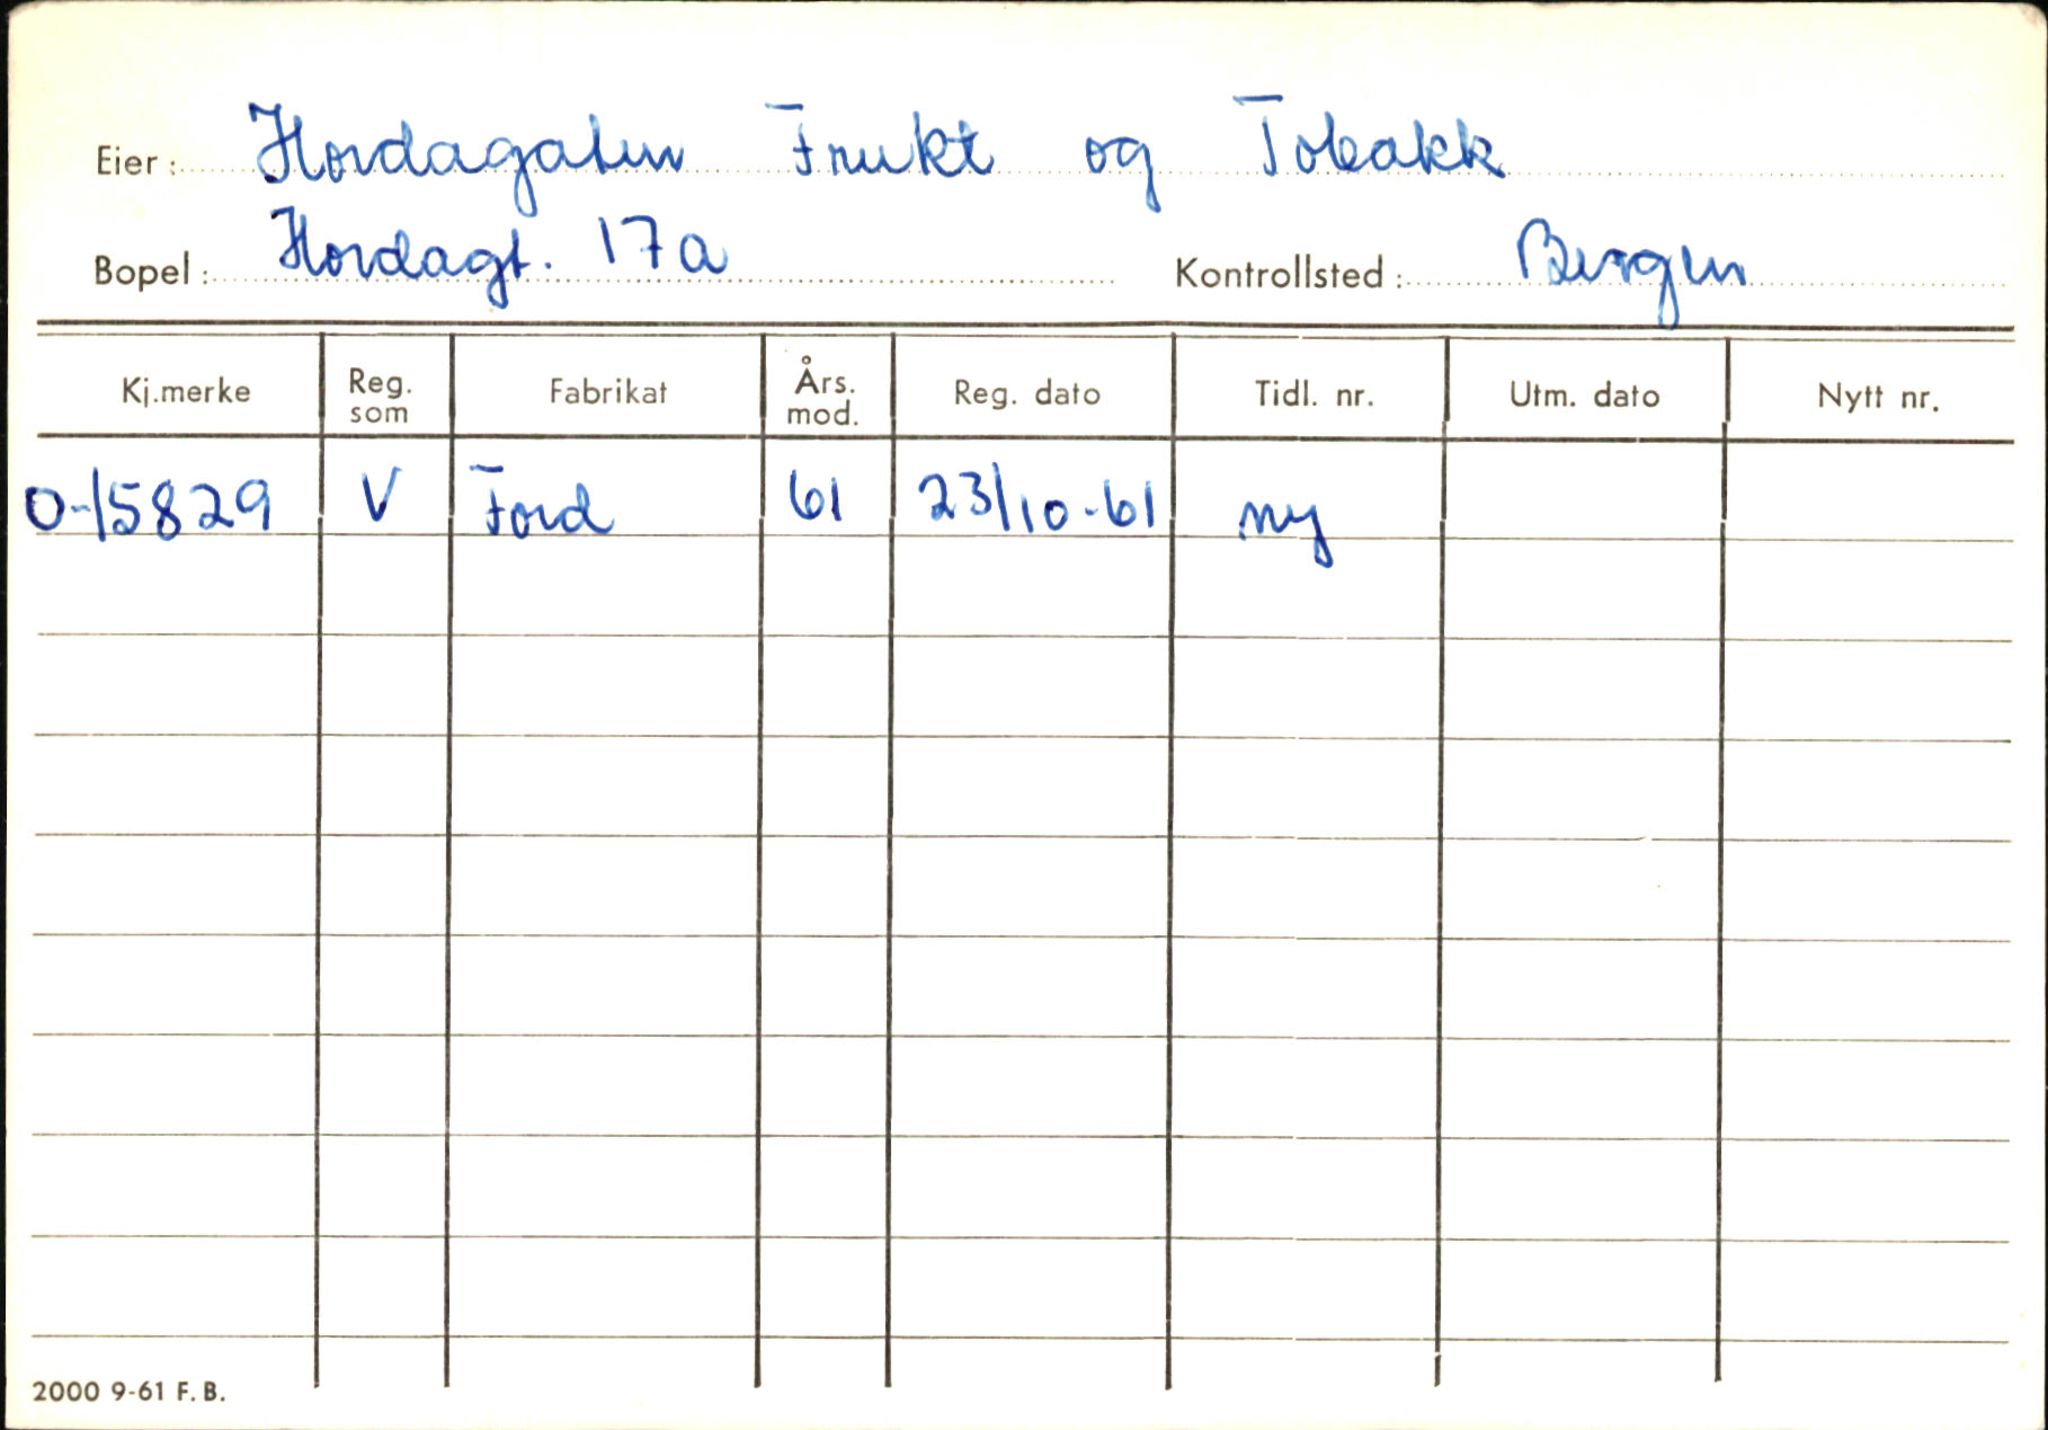 Eier: Hordagaten Frukt og Tobakk
Bopel: Hordagt. 17a Kontrollsted: Bergen
Kj.merke Reg. som Fabrikat Års. mod. Reg. dato Tidl. nr. Utm. dato Nytt nr.
O-15829 V Ford 61 23/10-61 ny
2000 9-61 F.B.